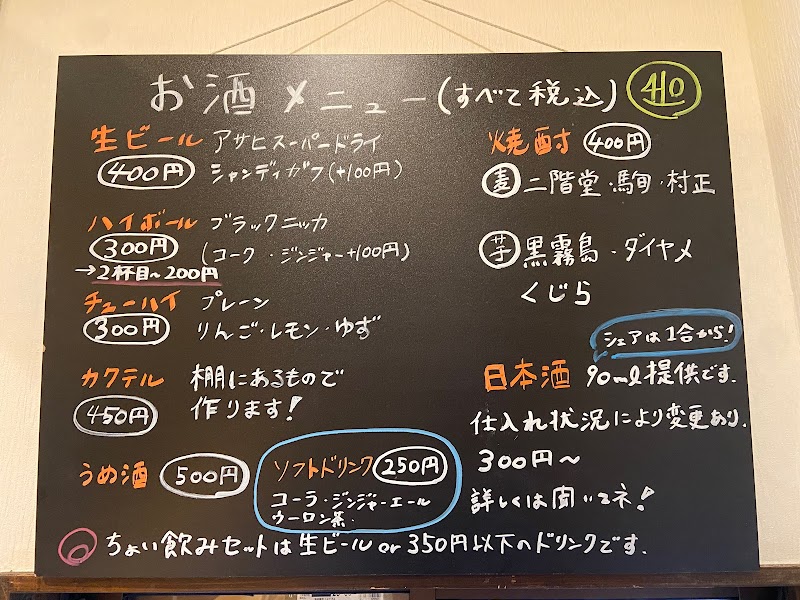 お酒メニュー(すべて税込)
生ビール アサヒスーパードライ
400円 シャンディガフ(+100円)
ハイボール ブラックニッカ
300円 (コーク・ジンジャー+100円)
→2杯目〜200円
チューハイ プレーン
300円 りんご・レモン・ゆず
カクテル 棚にあるもので
450円 作ります!
うめ酒 500円
ソフトドリンク 250円
コーラ・ジンジャーエール
ウーロン茶
焼酎 400円
麦 二階堂・駒・村正
芋 黒霧島・ダイヤメ
くじら
シェアは1合から!
日本酒 90ml提供です.
仕入れ状況により変更あり.
300円〜
詳しくは聞いてネ!
ちょい飲みセットは生ビールor350円以下のドリンクです.